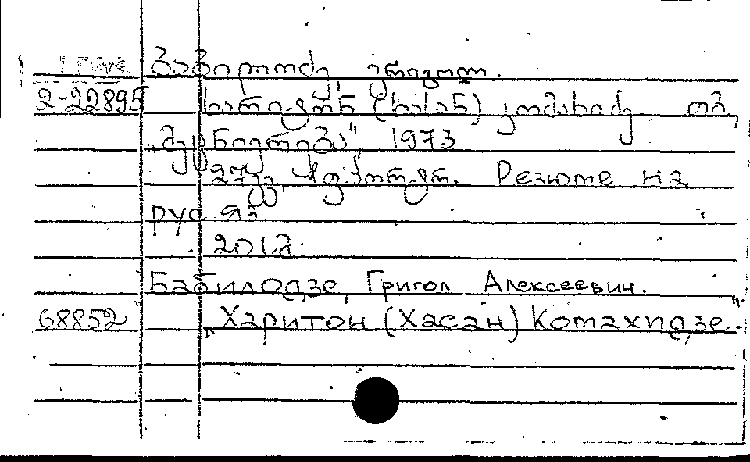 ბაბილოძე გრიგოლ.
2-22895 ხარიტონ (ხასან) კომახიძე თბ,
„მეცნიერება“, 1973
27გვ. პორტრ. Резюме на
рус яз
2012
Бабилодзе, Григол Алексеевич.
68852 „Харитон (Хасан) Комахидзе".